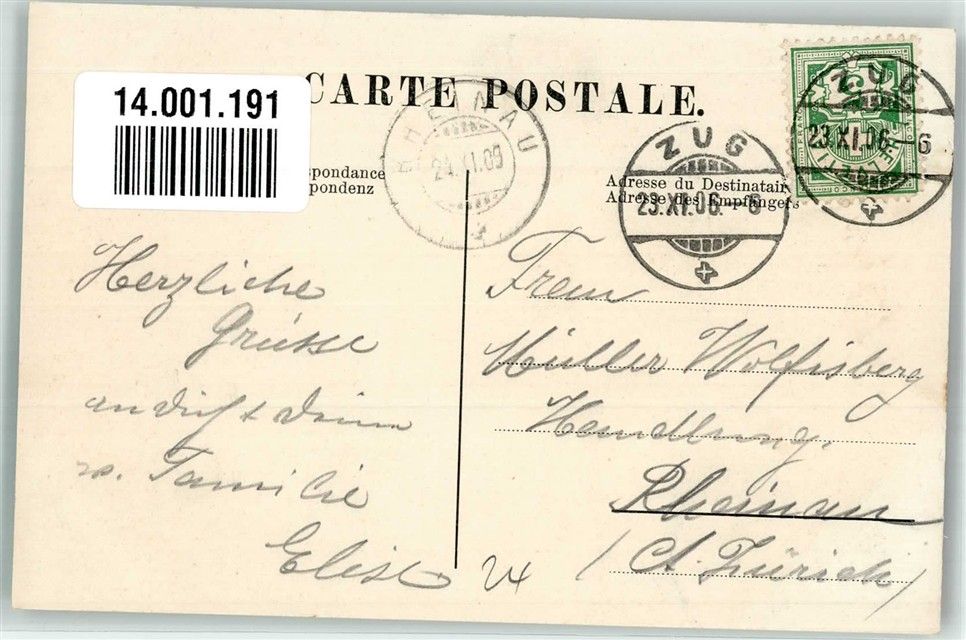 CARTE POSTALE.
14.001.191
RHEINAU
24.XI.09
ZUG
23.XI.06.–6
ZUG
23.XI.06.–6
spondance
pondenz
Adresse du Destinataire
Adresse des Empfängers
HELVETIA
Herzliche
Grüsse
an dich & deine
w. Familie
Elise
24
Frau
Müller Wolfisberg
Handlung,
Rheinau
(Ct. Zürich)